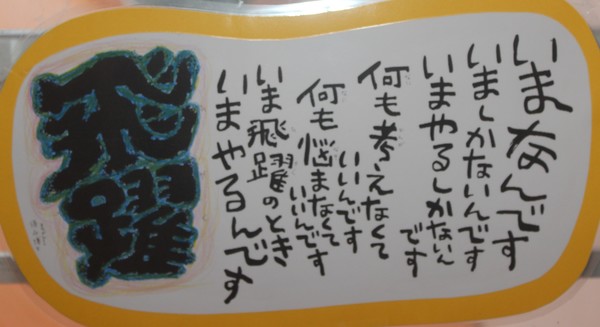 いまなんです
いましかないんです
いまやるしかないんです
何も考えなくて
いいんです
何も悩まなくて
いいんです
いま飛躍のとき
いまやるんです
飛躍